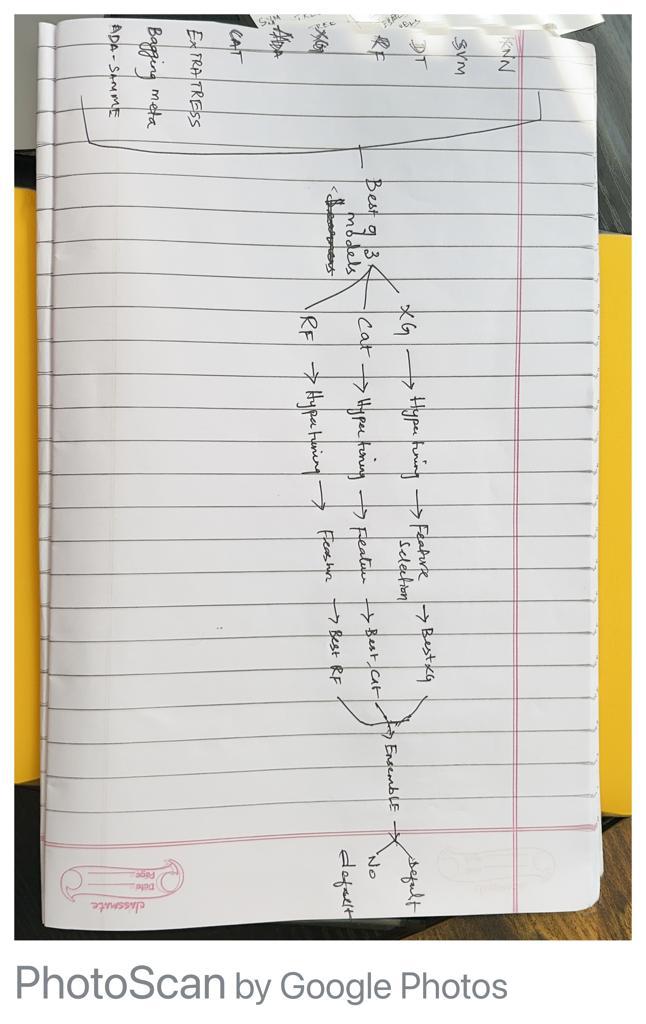 KNN
SVM
DT
RF
XG
ADA
CAT
EXTRATRESS
Bagging meta
ADA-SAMME
Best of 3
models
XG → Hypertuning → Feature
Selection → Best XG
Cat → Hypertuning → Feature → Best Cat
RF → Hypertuning → Feature → Best RF
→ EnsembLE →
Default
No
default
classmate
Date
Page
PhotoScan by Google Photos